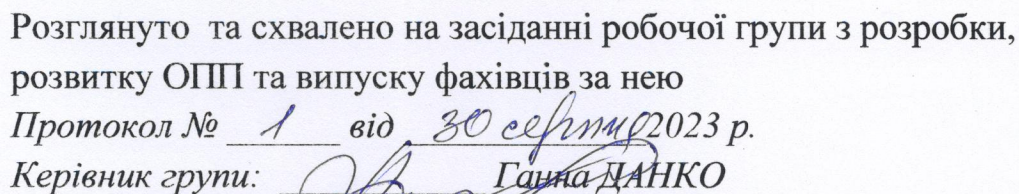 Розглянуто та схвалено на засіданні робочої групи з розробки,
розвитку ОПП та випуску фахівців за нею
Протокол № 1 від 30 серпня 2023 р.
Керівник групи: Ганна ДАНКО